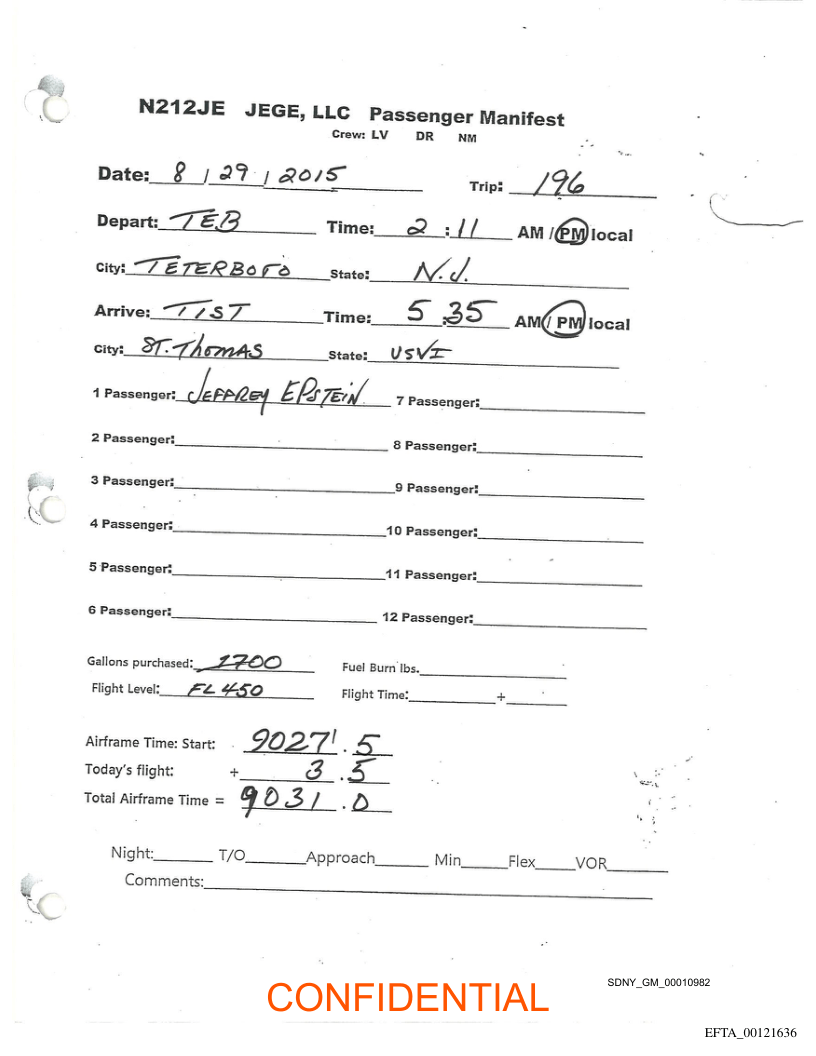 N212JE JEGE, LLC Passenger Manifest
Crew: LV DR NM
Date: 8 / 29 / 2015 Trip: 196
Depart: TEB Time: 2 : 11 AM / PM local
City: TETERBORO State: N.J.
Arrive: TIST Time: 5 : 35 AM / PM local
City: ST. THOMAS State: USVI
1 Passenger: JEFFREY EPSTEIN 7 Passenger:
2 Passenger: 8 Passenger:
3 Passenger: 9 Passenger:
4 Passenger: 10 Passenger:
5 Passenger: 11 Passenger:
6 Passenger: 12 Passenger:
Gallons purchased: 1700 Fuel Burn lbs.
Flight Level: FL 450 Flight Time: +
Airframe Time: Start: 9027 . 5
Today's flight: + 3 . 5
Total Airframe Time = 9031 . 0
Night: T/O Approach Min Flex VOR
Comments:
SDNY_GM_00010982
CONFIDENTIAL
EFTA_00121636